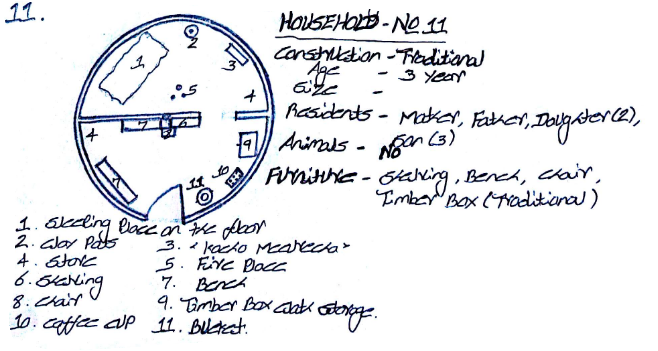 11.
HOUSEHOLD - NO 11
Construction - Traditional
Age - 3 year
Size -
Residents - Mather, Father, Daughter (2),
Son (3)
Animals - NO
Furniture - Shelving, Bench, chair,
Timber Box (Traditional)
1
2
3
4
5
4
7
6
8
9
7
10
11
1. Sleeping Place on the floor
2. Clay Pots 3. "Kocho
4. Store 5. Fire Place
6. Shelving 7. Bench
8. chair 9. Timber Box cloth storage.
10. coffee cup 11. Bucket.